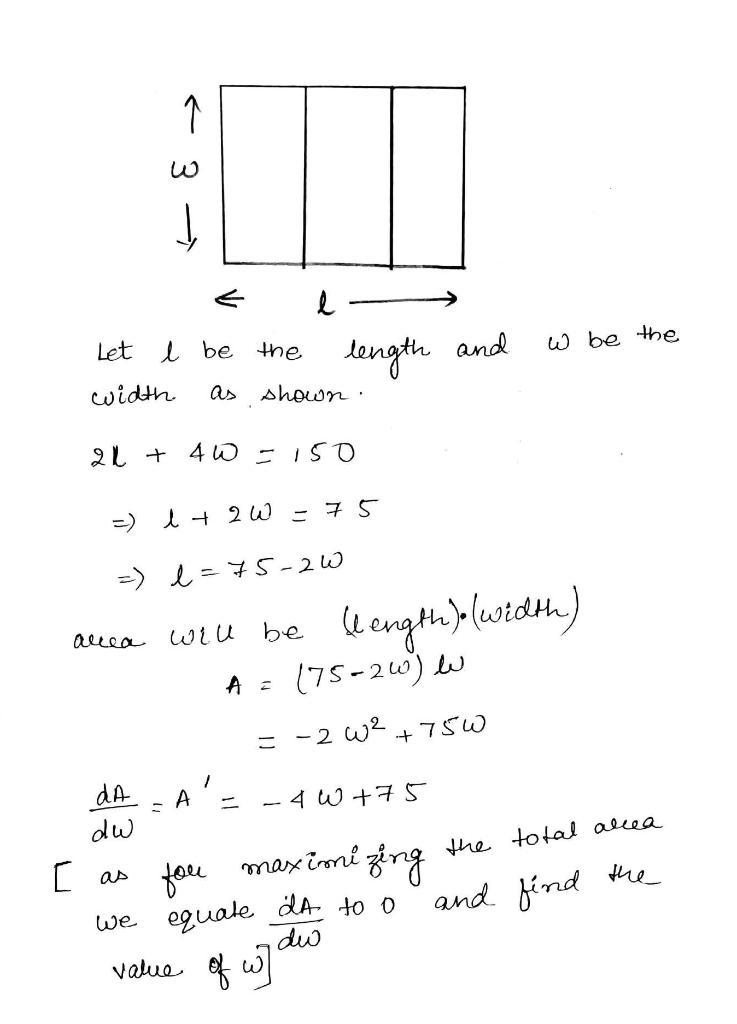 ↑
w
↓
← l →
Let l be the length and w be the
width as shown.
2l + 4w = 150
=> l + 2w = 75
=> l = 75 - 2w
area will be (length)·(width)
A = (75-2w) w
= -2w² + 75w
dA/dw = A' = -4w + 75
[ as for maximizing the total area
we equate dA/dw to 0 and find the
value of w]